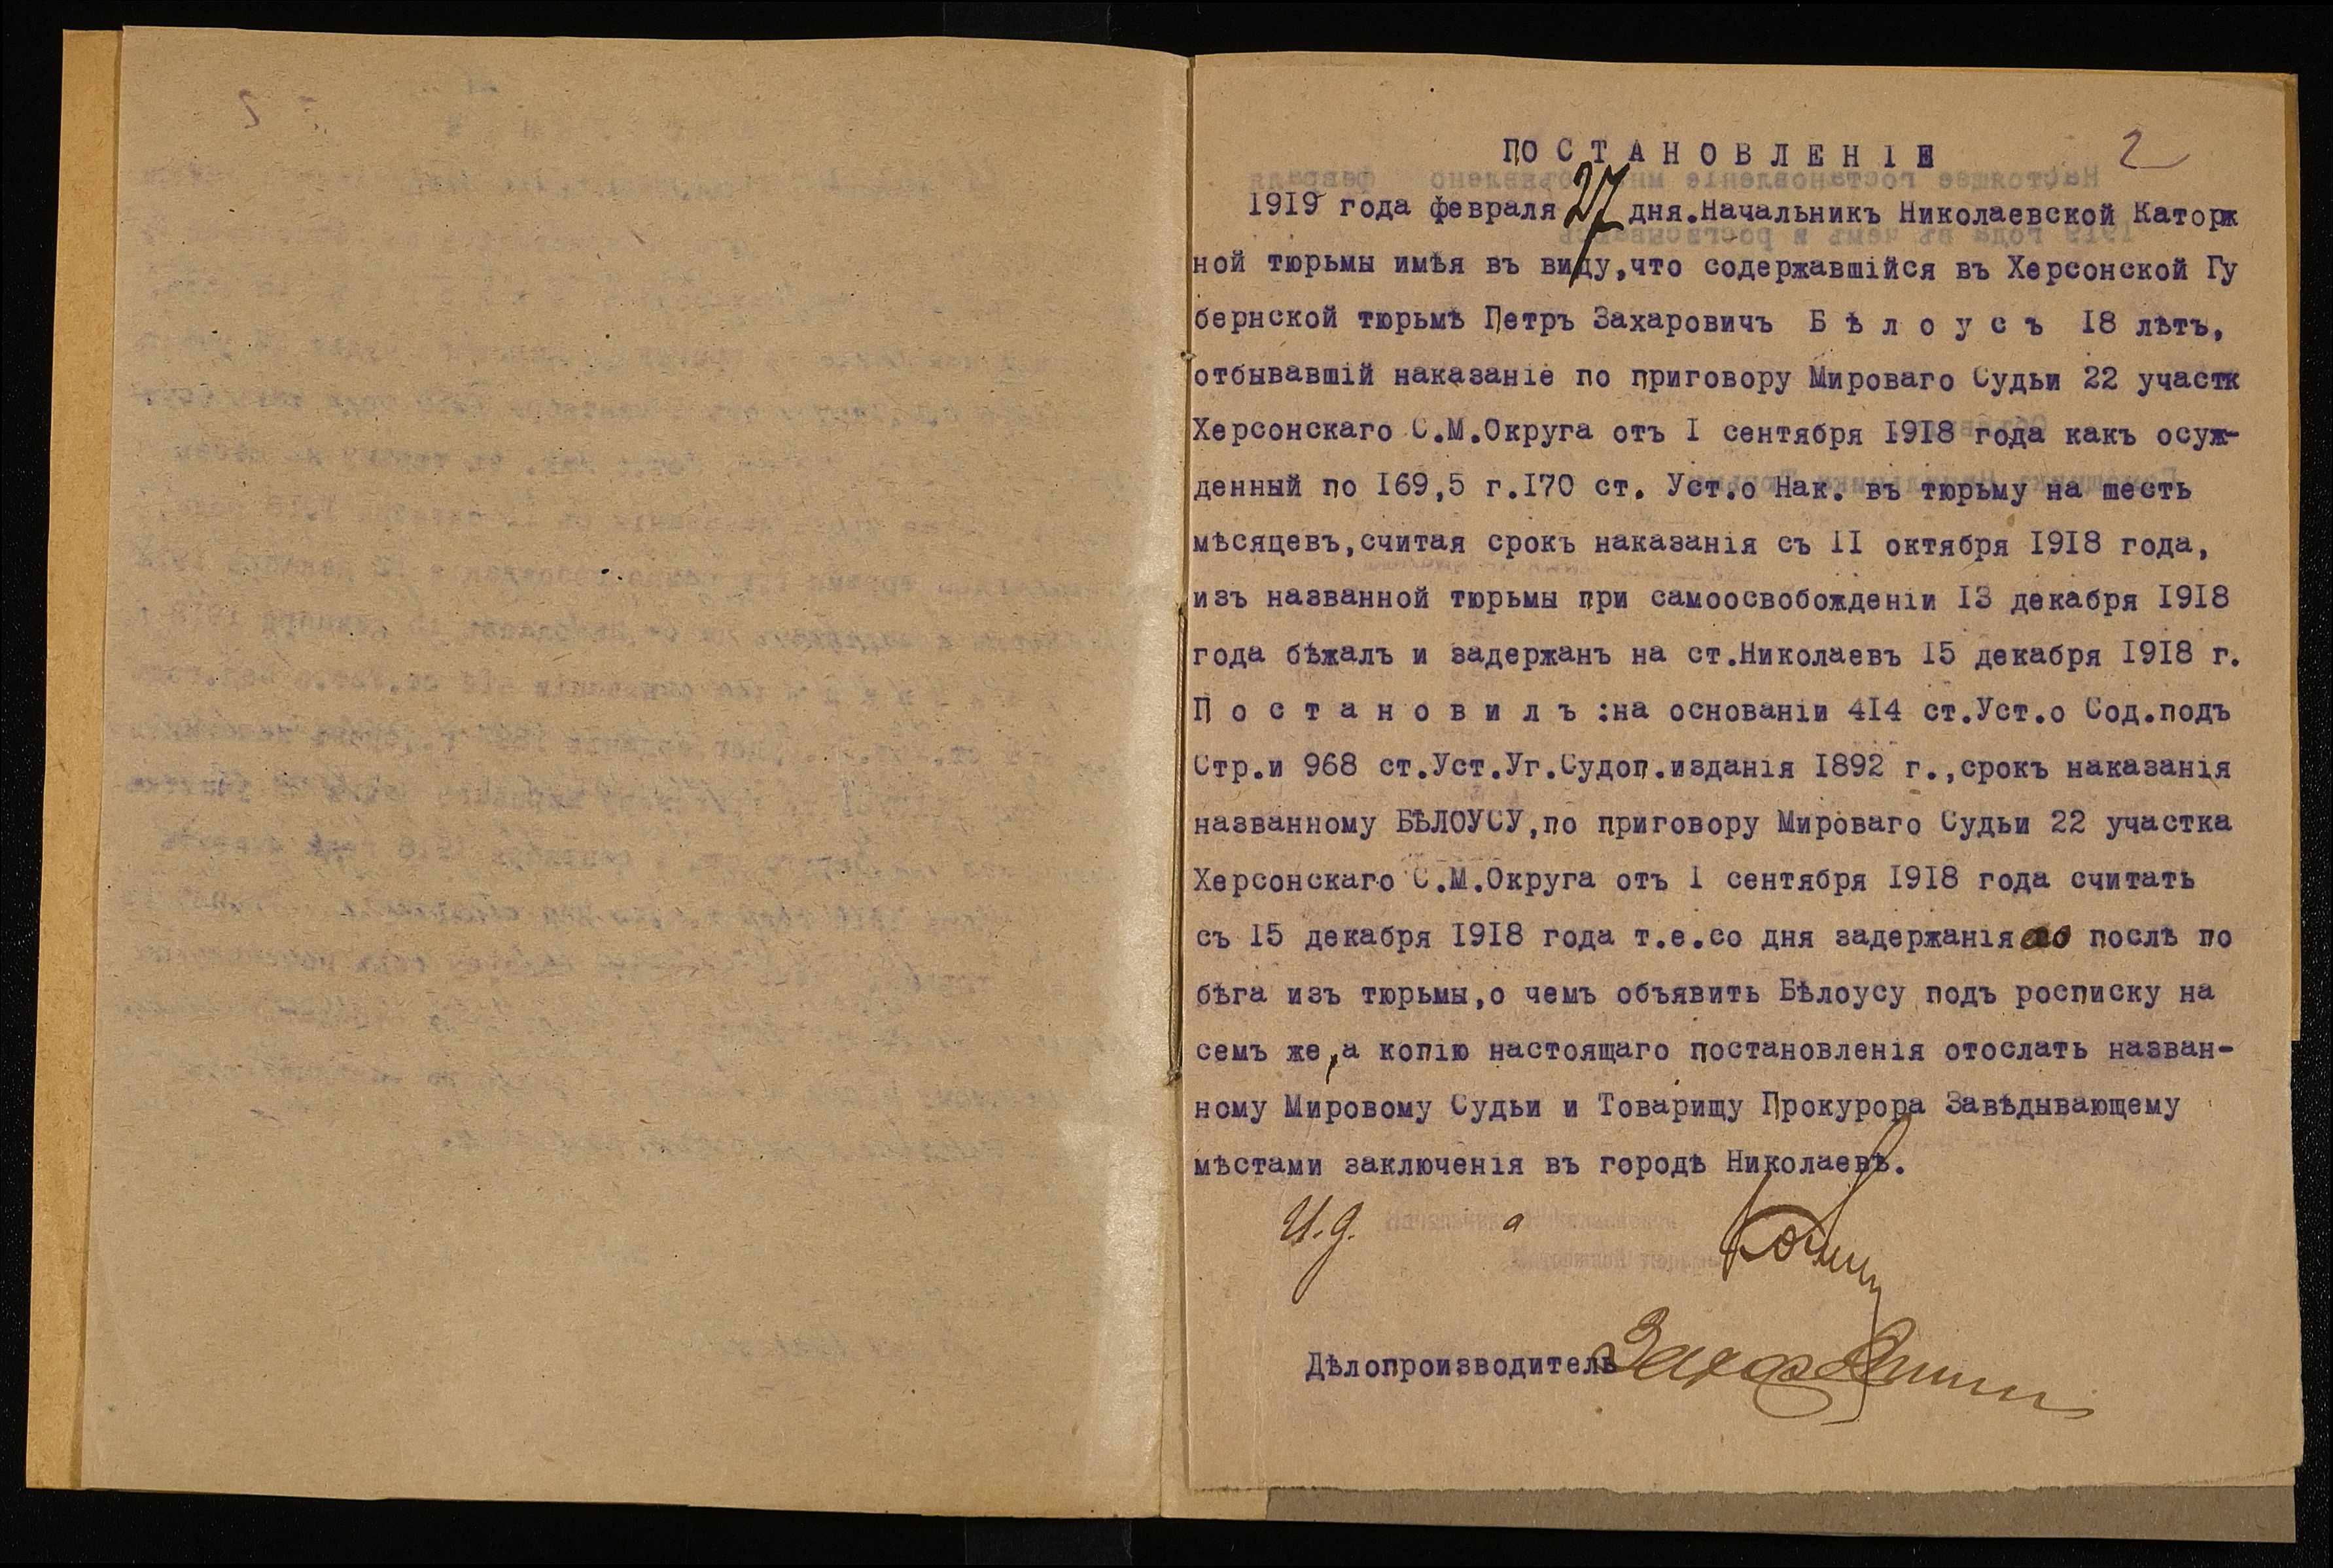 2
ПОСТАНОВЛЕНІЕ
1919 года февраля 27 дня.Начальникъ Николаевской Каторж
ной тюрьмы имѣя въ виду,что содержавшійся въ Херсонской Гу
бернской тюрьмѣ Петръ Захаровичъ Бѣлоусъ 18 лѣтъ,
отбывавшій наказаніе по приговору Мироваго Судьи 22 участк
Херсонскаго С.М.Округа отъ I сентября 1918 года какъ осуж-
денный по 169,5 г.170 ст. Уст.о Нак. въ тюрьму на шесть
мѣсяцевъ,считая срокъ наказанія съ 11 октября 1918 года,
изъ названной тюрьмы при самоосвобожденіи 13 декабря 1918
года бѣжалъ и задержанъ на ст.Николаевъ 15 декабря 1918 г.
Постановилъ:на основаніи 414 ст.Уст.о Сод.подъ
Стр.и 968 ст.Уст.Уг.Судоп.изданія 1892 г.,срокъ наказанія
названному БѢЛОУСУ,по приговору Мироваго Судьи 22 участка
Херсонскаго С.М.Округа отъ 1 сентября 1918 года считать
съ 15 декабря 1918 года т.е.со дня задержанія послѣ по
бѣга изъ тюрьмы,о чемъ объявить Бѣлоусу подъ росписку на
семъ же,а копію настоящаго постановленія отослать назван-
ному Мировому Судьи и Товарищу Прокурора Завѣдывающему
мѣстами заключенія въ городѣ Николаевѣ.
И.д. а
Дѣлопроизводитель